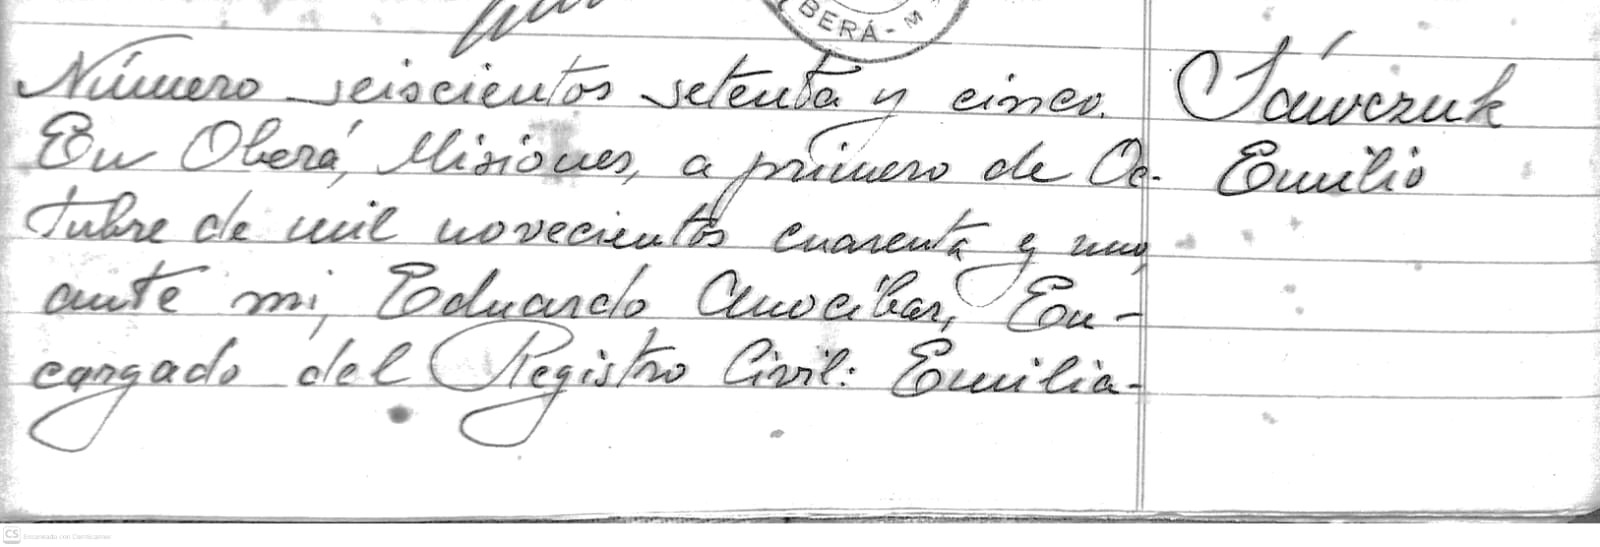 BERÁ - M
Número seiscientos setenta y cinco.
En Oberá, Misiones, a primero de Oc-
tubre de mil novecientos cuarenta y uno,
ante mi, Eduardo Anocíbar, En-
cargado del Registro Civil: Emilia-
Sawczuk
Emilio
CS Escaneado con CamScanner